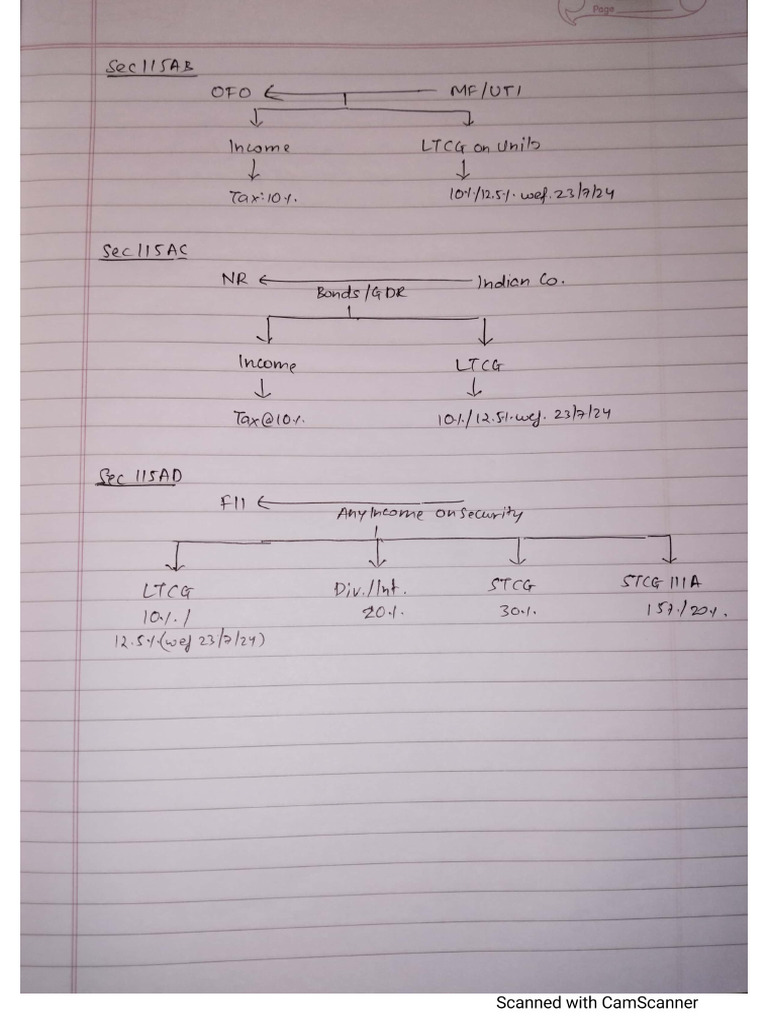 Page
Sec 115AB
OFO ← MF/UTI
Income LTCG on Units
Tax: 10%. 10%/12.5%. wef. 23/7/24
Sec 115AC
NR ← Indian Co.
Bonds/GDR
Income LTCG
Tax@10%. 10%/12.5%. wef. 23/7/24
Sec 115AD
FII ←
Any Income on Security
LTCG Div./Int. STCG STCG 111A
10%/ 20%. 30%. 15%/20%.
12.5%(wef 23/7/24)
Scanned with CamScanner